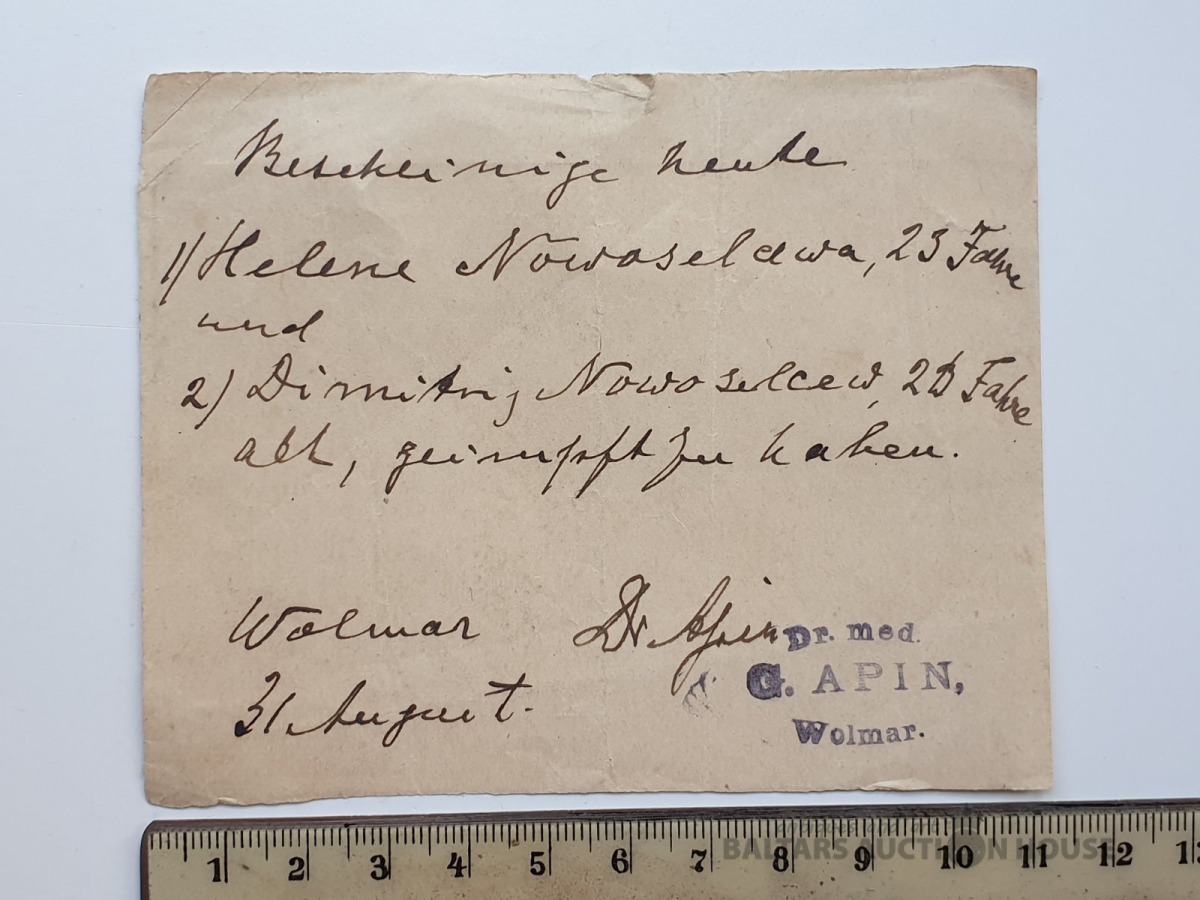 Bescheinige heute
1) Helene Nowoselcewa, 23 Jahre
und
2) Dimitrij Nowoselcew, Jahre
alt, geimpft zu haben.
Wolmar Dr Apin
31 August.
Dr. med.
G. APIN,
Wolmar.
1 2 3 4 5 6 7 8 9 10 11 12 13
BALTARS AUCTION HOUSE